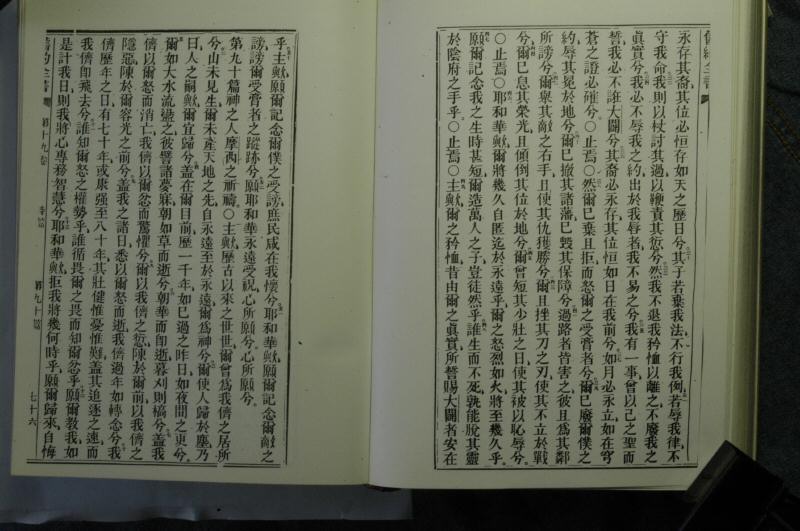 永存其裔其位必恒存如天之歷日兮其子若棄我法不行我例若辱我律不
守我命我則以杖討其過以鞭責其愆兮然我不退我矜恤以離之不廢我之
眞實兮我必不辱我之約出於我脣者我不易之兮我有一事曾以己之聖而
誓我必不誑大闢兮其裔必永存其位恒如日在我前兮如月必永立如在穹
蒼之證必確兮○止焉○然爾已棄且拒而怒爾之受膏者兮爾已廢爾僕之
約辱其冕於地兮爾已撤其諸藩已毀其保障兮過路者皆害之彼且爲其鄰
所謗兮爾舉其敵之右手且使其仇獲勝兮爾且挫其刀之刃使其不立於戰
兮爾已息其榮光且傾倒其位於地兮爾曾短其少壯之日使其被以恥辱兮
○止焉○耶和華歟爾將幾久自匿迄於永遠乎爾之怒烈如火將至幾久乎
願爾記念我之生時甚短爾造萬人之子豈徒然乎誰生而不死孰能脫其靈
於陰府之手乎○止焉○主歟爾之矜恤昔由爾之眞實所誓賜大闢者安在
乎主歟願爾記念爾僕之受謗庶民咸在我懷兮耶和華歟願爾記念爾敵之
謗謗爾受膏者之蹤跡兮願耶和華永遠受祝心所願兮心所願兮
第九十篇神之人摩西之祈禱○主歟歷古以來之世世爾曾爲我儕之居所
兮山未見生爾未產天地之先自永遠至於永遠爾爲神兮爾使人歸於塵乃
曰人之嗣歟爾宜歸兮蓋在爾目前歷一千年如已過之昨日如夜間之更兮
爾如大水流盪之彼譬諸憂寐朝如草而逝兮朝華而卽逝暮刈則槁兮蓋我
儕以爾怒而消亡我儕以爾忿而驚懼兮爾以我儕之愆陳於爾前以我儕之
隱惡陳於爾容光之前兮蓋我之諸日悉以爾怒而逝我儕過年如轉念兮我
儕歷年之日有七十年或康强至八十年其壯健惟憂惟難蓋其追逐之速而
我儕卽飛去兮誰知爾怒之權勢乎誰循畏爾之畏而知爾忿乎願爾敎我如
是計我日則我將心專務智慧兮耶和華歟拒我將幾何時乎願爾歸來自悔
舊約全書
第十九卷
第九十篇
七十六